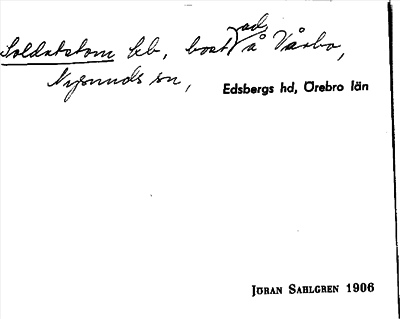 Soldatstom lhb, bostad å Vårbo,
Nysunds sn,
Edsbergs hd, Örebro län
JÖRAN SAHLGREN 1906